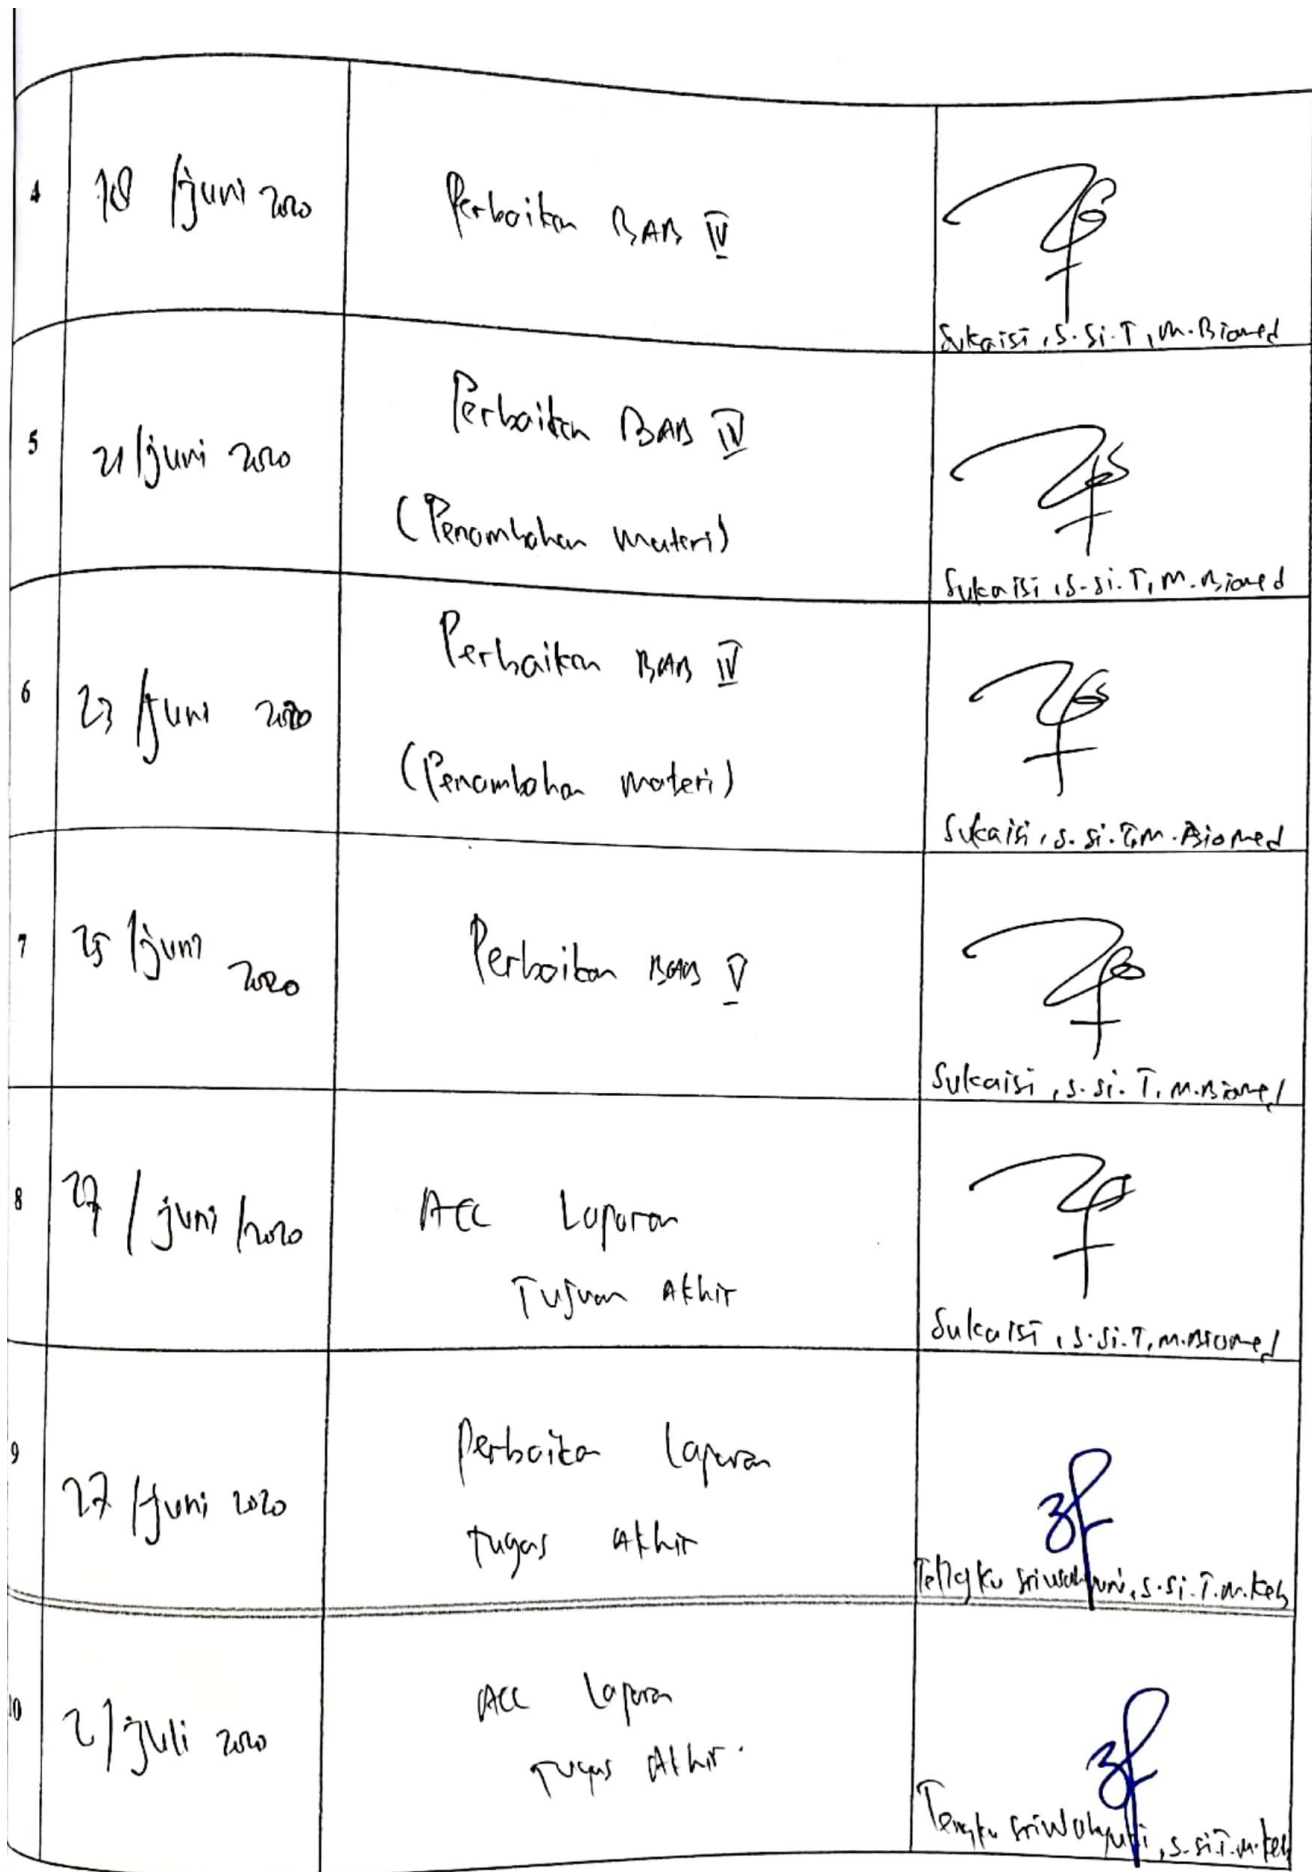 4
18 /juni 2020
Perbaikan BAB IV
Sukaisi, S.Si.T, M.Biomed
5
21/juni 2020
Perbaikan BAB IV
(Penambahan materi)
Sukaisi, S.Si.T, M.Biomed
6
23 /juni 2020
Perbaikan BAB IV
(Penambahan materi)
Sukaisi, S.Si.T, M.Biomed
7
25 /juni
2020
Perbaikan BAB V
Sukaisi, S.Si.T, M.Biomed
8
27 / juni /2020
ACC Laporan
Tujuan Akhir
Sukaisi, S.Si.T, M.Biomed
9
27 /juni 2020
Perbaikan Laporan
tugas Akhir
Tengku Sriwahyuni, S.Si.T, M.Keb
10
2/juli 2020
ACC Laporan
Tugas Akhir.
Tengku Sriwahyuni, S.Si.T, M.Keb